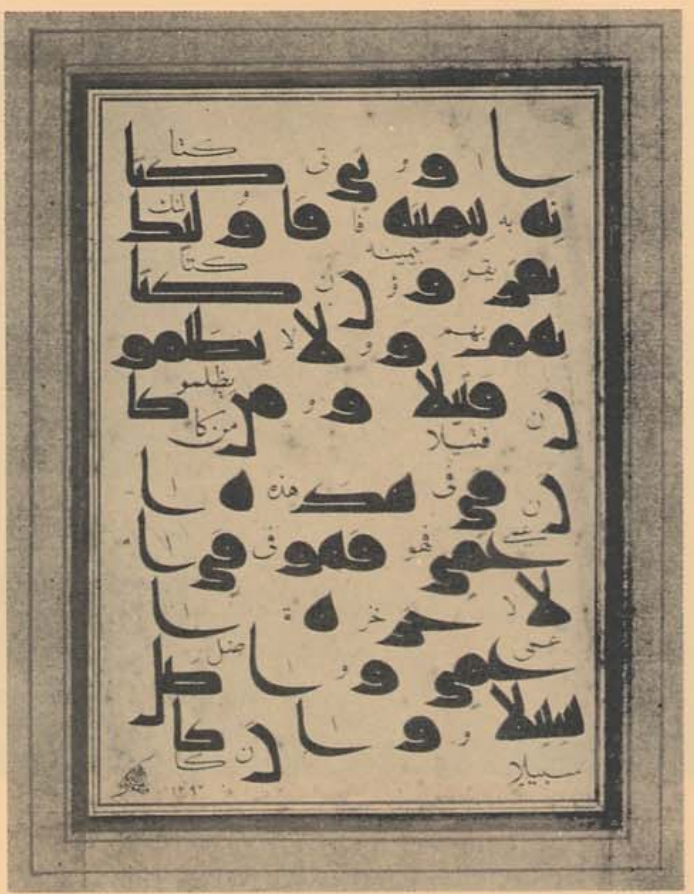 ا و تى كتا
به بيمينه فا و لئك
يقر و ن كتا
بهم و لا يظلمو
ن فتيلا و من كا
ن فى هذه ا
عمى فهو فى ا
لا خر ة ا
عمى و ا ضل
سبيلا و ا ن كا